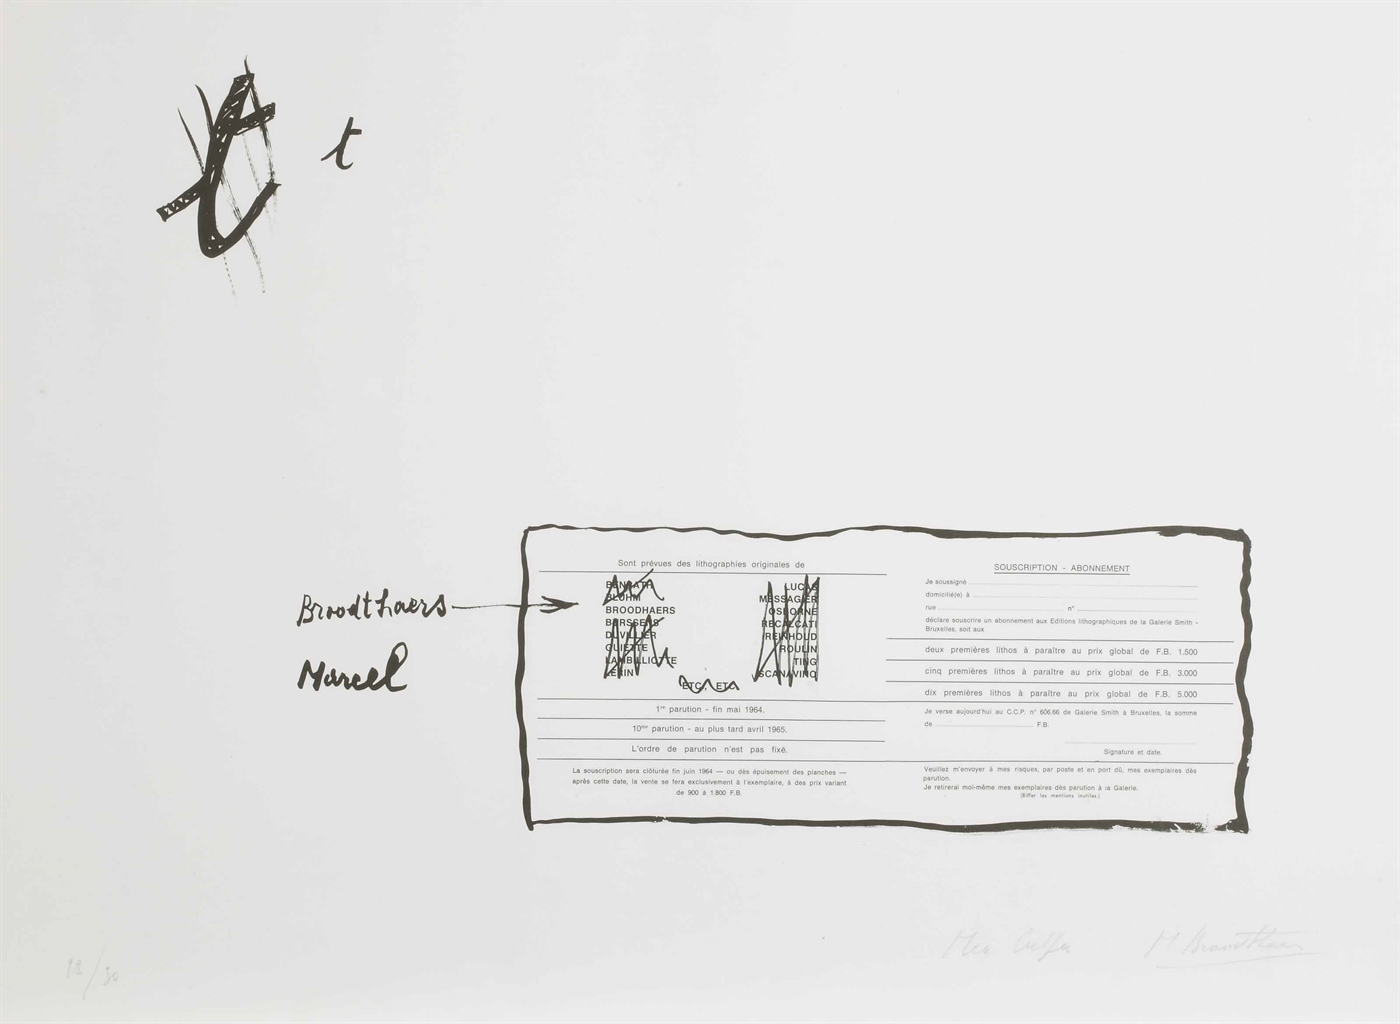 t t
Broodthaers
Marcel
Sont prévues des lithographies originales de
BENRATH
BLUHM
BROODHAERS
DUVILLIER
GUIETTE
LAMBILLIOTTE
LUCAS
MESSAGIER
OSBORNE
RECALCATI
REINHOUD
ROULIN
TING
SCANAVINO
ETC., ETC.
1re parution - fin mai 1964.
10me parution - au plus tard avril 1965.
L'ordre de parution n'est pas fixé.
La souscription sera clôturée fin juin 1964 — ou dès épuisement des planches —
après cette date, la vente se fera exclusivement à l'exemplaire, à des prix variant
de 900 à 1.800 F.B.
SOUSCRIPTION - ABONNEMENT
Je soussigné
domicilié(e) à
rue n°
déclare souscrire un abonnement aux Editions lithographiques de la Galerie Smith -
Bruxelles, soit aux
deux premières lithos à paraître au prix global de F.B. 1.500
cinq premières lithos à paraître au prix global de F.B. 3.000
dix premières lithos à paraître au prix global de F.B. 5.000
Je verse aujourd'hui au C.C.P. n° 606.66 de Galerie Smith à Bruxelles, la somme
de F.B.
Signature et date.
Veuillez m'envoyer à mes risques, par poste et en port dû, mes exemplaires dès
parution.
Je retirerai moi-même mes exemplaires dès parution à la Galerie.
(Biffer les mentions inutiles.)
Mea Culpa M Broodthaers
/30